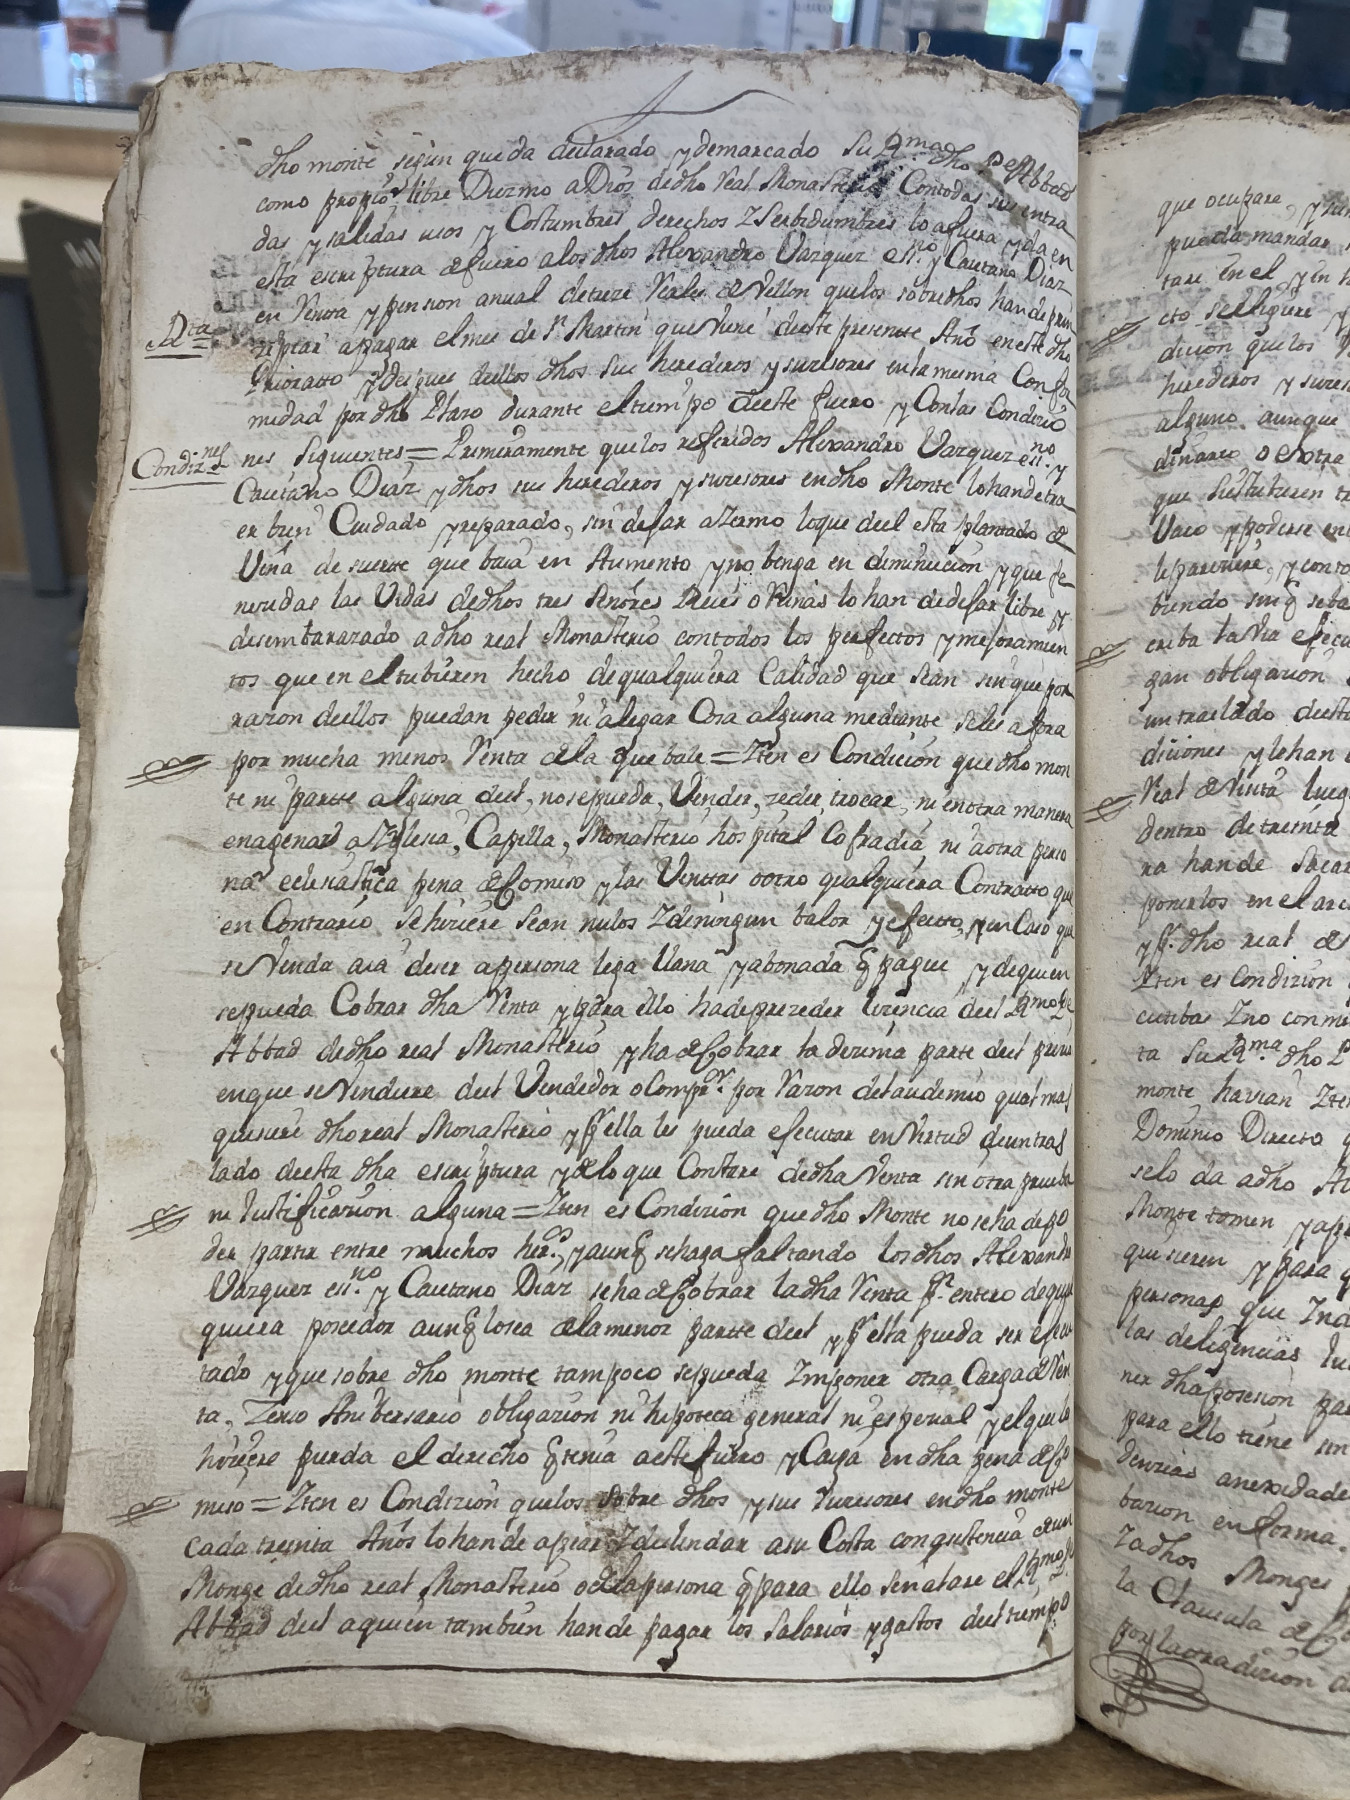 dho monte segun queda declarado y demarcado Su Rma dho Pe Abbad
como propio libre Diezmo a Dios dedho real Monasterio Contodas sus entra
das y salidas usos y Costumbres derechos Zserbidumbres lo afuera y da en
esta escriptura defuero alos dhos Alexandro Vazquez essno y Caetano Diaz
en Renta y pension anual detreze Reales de Vellon quelos sobredhos hande prin
zipiar apagar elmes de Sn Martin que viene deeste presente Año eneste dho
Priorato y despues deellos dhos sus herederos y suzesores enlamesma Confor
midad por dho Plazo durante eltiempo deeste fuero y Conlas Condicio
nes siguientes = Primeramente quelos referidos Alexandro Vazquez essno y
Caetano Diaz y dhos sus herederos y suzesores endho Monte lohandetra
er bien Cuidado y reparado, sin dejar aZermo loque deel esta plantado de
Viña de suerte que baia en Aumento y no benga en diminucion y que fe
nezidas las Vidas dedhos tres Señores Reies o Reinas lo han dedejar libre y
desembarazado adho real Monasterio contodos los perfectos y mejoramien
tos que en el tubieren hecho dequalquiera Calidad que sean sin que por
razon deellos puedan pedir ni alegar Cosa alguna mediante seles afora
por mucha menos Renta dela que bale = Iten es Condicion que dho mon
te ni parte alguna deel, nosepueda, Vender, zeder, trocar, ni enotra manera
enagenar aYglesia, Capilla, Monasterio, hospital Cofradia ni aotra perso
na eclesiastica pena deComiso y las Venttas ootro qualquiera Contratto que
en Contrario sehiziere sean nulos Zdeningun balor y efecto, y en Caso que
seVenda aia deser apersona lega llana y abonada q pague y dequien
sepueda Cobrar dha Renta y para ello hadeprezeder lizencia deel Rmo Pe
Abbad dedho real Monasterio y ha deCobrar la dezima parte deel prezio
enque seVendiere deel Vendedor oCompor por Razon delaudemio qual mas
quisiere dhoreal Monasterio y pr ella les pueda efecutar en Virtud deuntras
lado deesta dha escriptura y delo que Constare dedha Renta sin otra prueba
ni Justificazion alguna = Iten es Condizion que dho Monte no seha depo
der partir entre muchos heros y aunq sehaga faltando los dhos Alexandro
Vazquez essno y Caetano Diaz seha deCobrar ladha Renta pr entero dequal
quiera poseedor aunq losea delamenor partte deel y pr ella pueda ser efecu
tado y que sobre dho monte tampoco sepueda Imponer otra Carga deRen
ta, Zenso Anibersario obligazion ni hipoteca general ni espezial y elque lo
hiziere pierda el derecho q tenia aeste fuero y Caiga en dha pena deCo
miso = Iten es Condizion quelos sobre dhos y sus suzesores endho monte
cada treinta Años lo hande apear Zdeslindar asu Costa conasistencia deun
Monge dedho real Monasterio odelapersona q para ello señalare el Rmo Pe
Abbad deel aquien tambien hande pagar los salarios y gastos deel tiempo
Rta
Condiznes
que ocupare, y
pueda mandar
tare en el, y en
cto seligure y
dicion quelos
herederos y suzes
alguno. aunque
dinario o extra
que sustituieren
Uaco y poderse
lepareziere, y
biendo sin q
criba la Via efecu
gan obligazion
un traslado deesta
diciones y lehan
Real deRenta
dentro detreinta
ra hande sacar
ponerlos en el
y pr dho real de
Iten es Condizion
cutibas Zno
ta Su Rma dho P
monte havian
Dominio Directo
selo da adho
Monte tomen y
quisieren y para
personas que
las deligencias
ner dhaposesion
para ello tiene
denzias anexidade
bazion en forma.
Zadhos Monges
la Clausula de
por la